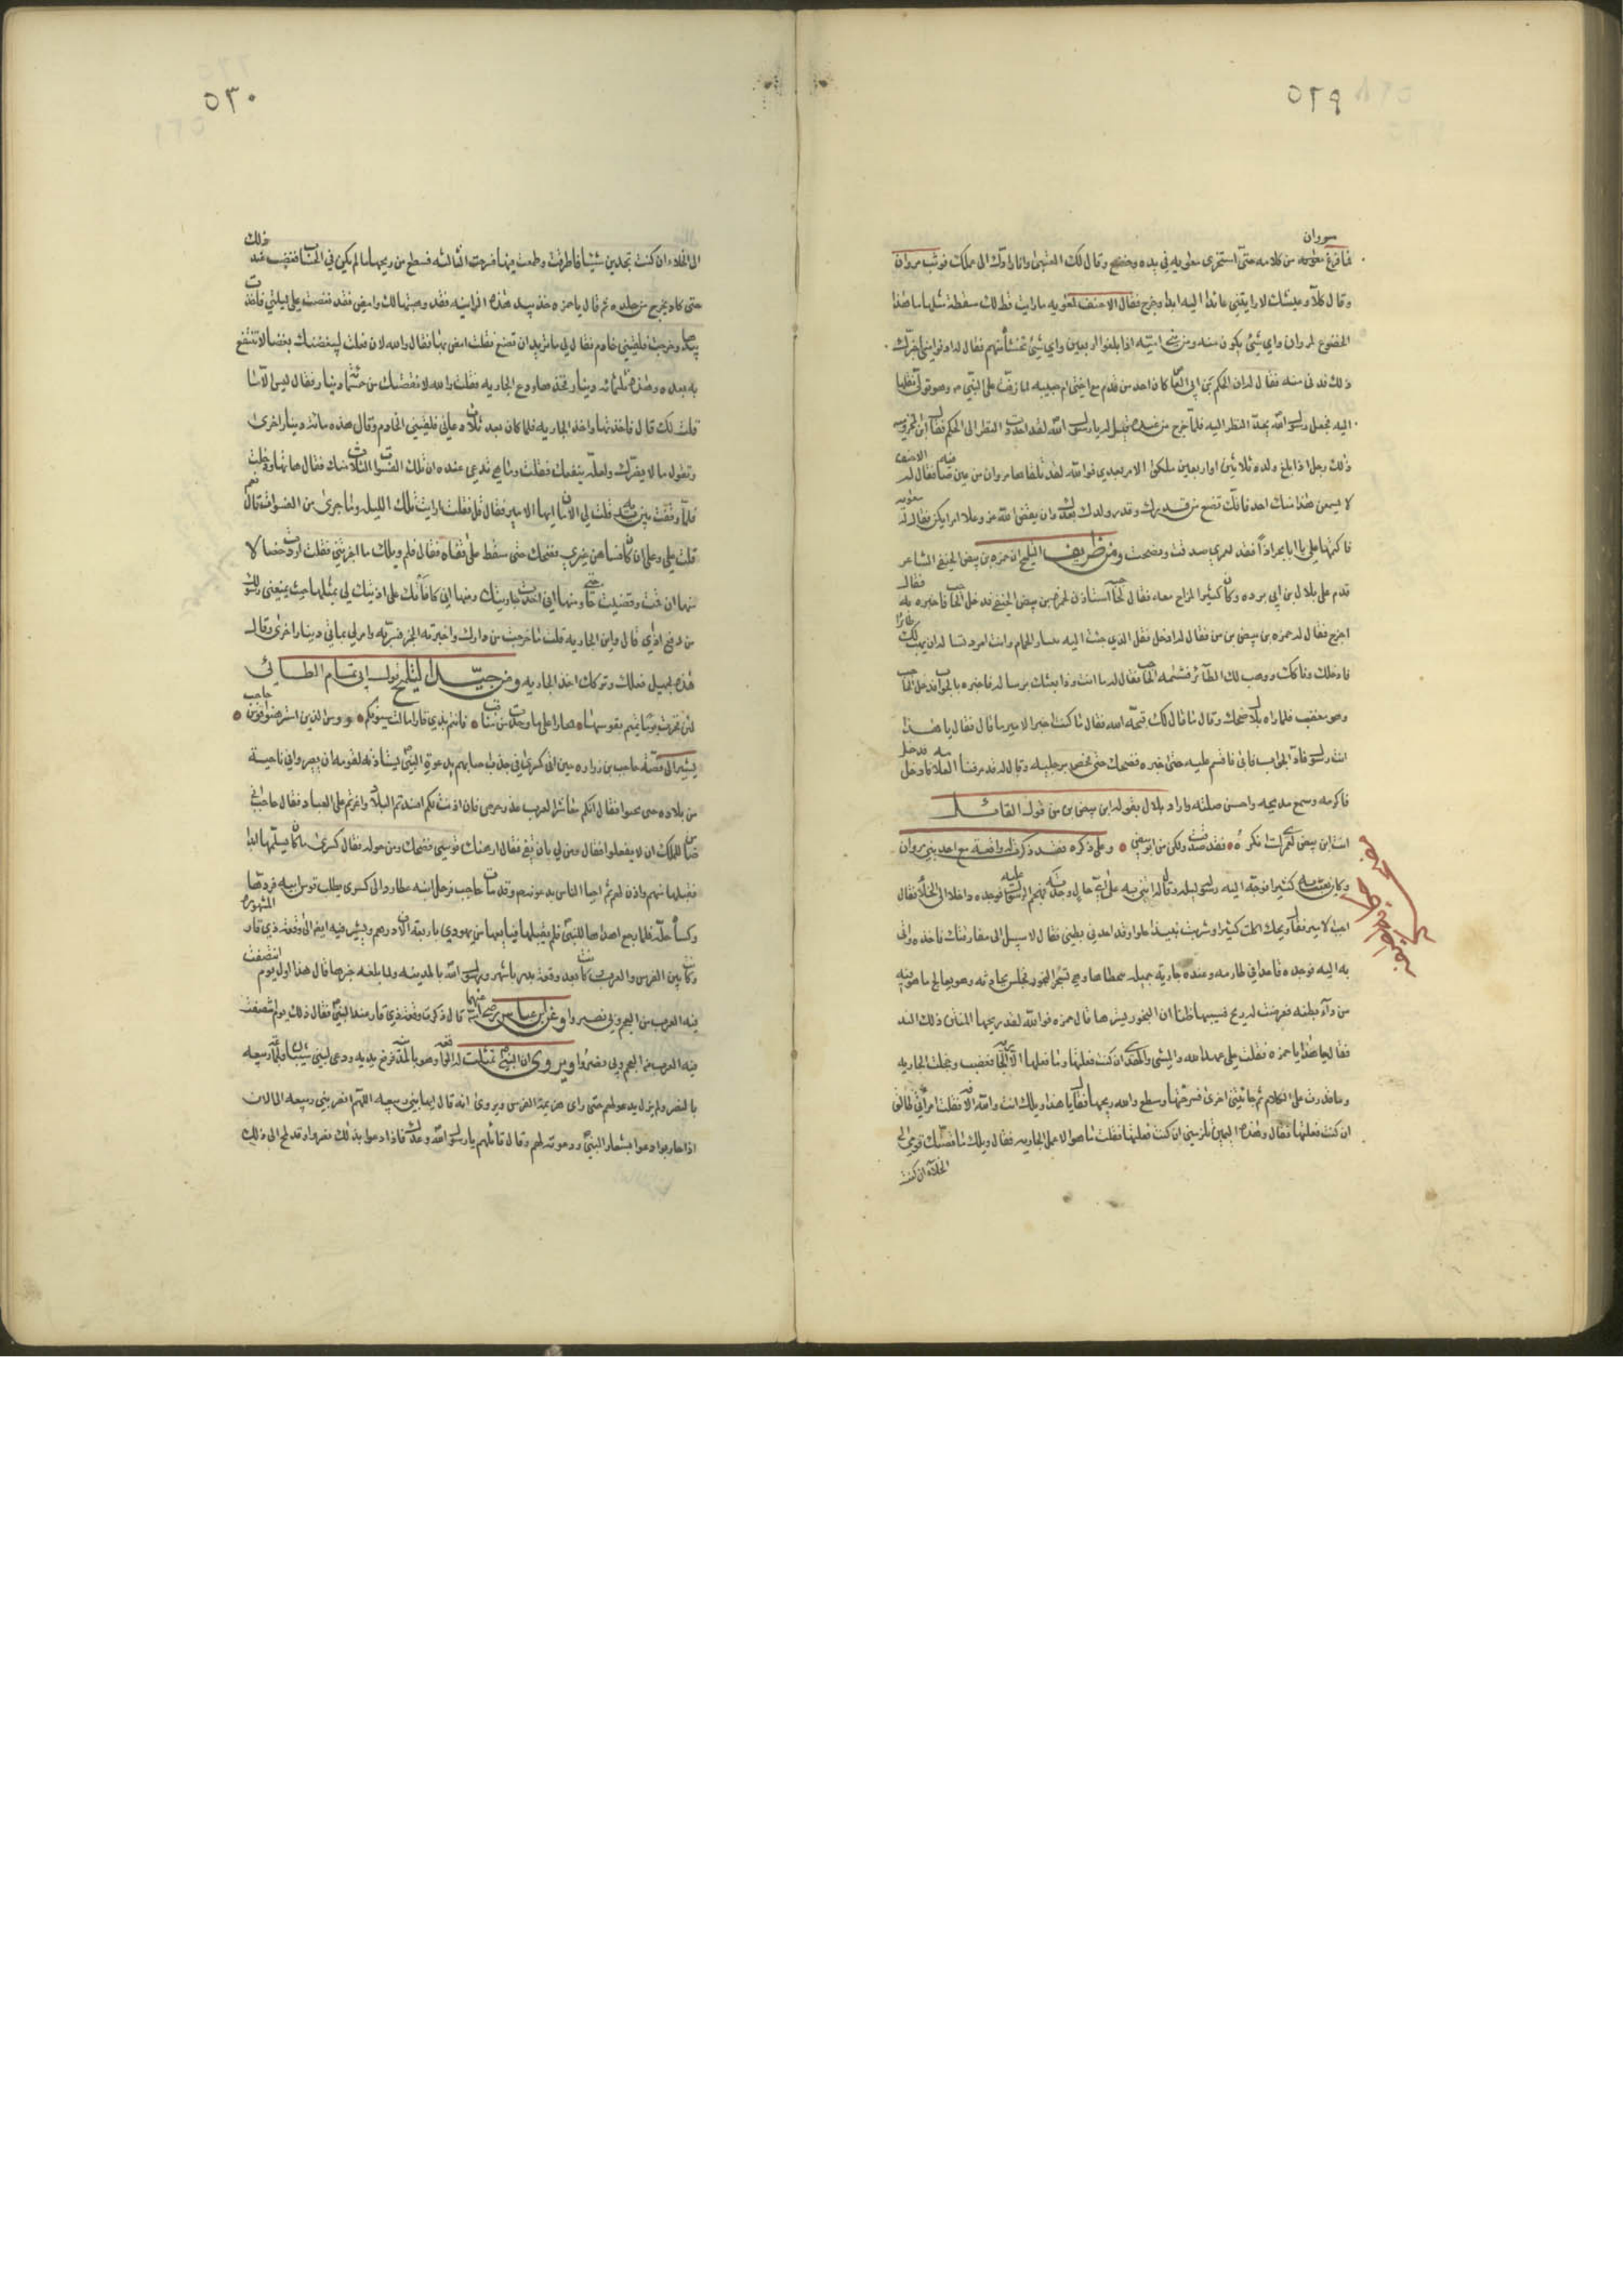 ٥٢٩
مروان
فما فرغ معويه من كلامه حتى استخزى معويه في يده وخضع وقال لك العتبى وانا رادك الى عملك فوثب مروان
وقال كلا وعيشك لا رايتني عائدا اليه ابدا وخرج فقال الاحنف لمعويه ما رايت قط لك سقطة مثلها ما هذا
الخضوع لمروان واي شئ يكون منه ومن بني ابيه اذا بلغوا اربعين واي شئ تخشاه منهم فقال له ادن مني اخبرك
ذلك فدنى منه فقال له ان الحكم بن ابي العاص كان احد من قدم مع اختي ام حبيبه لما زفت على النبي وهو تولى نقلها
اليه فجعل رسول الله يحد النظر اليه فلما خرج من عنده قيل له يا رسول الله لقد احددت النظر الى الحكم فقال ابن المخزوميه
ذلك رجل اذا بلغ ولده ثلاثين او اربعين ملكوا الامر بعدي فوالله لقد تلقاها مروان من عين صافيه فقال له الاحنف
لا يسمعن هذا منك احد فانك تضع من قدرك وقدر ولدك بعدك وان يقض الله عز وعلا امرا يكن فقال له معويه
فاكتمها علي يا ابا بحر اذا فقد لعمري صدقت ونصحت ومن ظريف التلميح ان حمزه بن بيض الحنفي الشاعر
قدم على بلال بن ابي برده وكان كثير المزاح معه فقال لحاجبه استاذن لحمزه بن بيض الحنفي فدخل الحاجب فاخبره به فقال
اخرج فقال له حمزه بن بيض بن من فقال له ادخل فقل الذي جئت اليه الحمام وانت امرد تساله ان يهب لك طائرا
فادخلك وناكك ووهب لك الطائر فشتمه الحاجب فقال له ما انت وذا بعثك برساله فاخبره بالجواب فدخل الحاجب
وهو مغضب فلما راه بلال ضحك وقال ما قال لك قبحه الله فقال ما كنت اخبر الامير بما قال فقال يا هذا
انت رسول فاد الجواب فابى فاقسم عليه حتى اخبره فضحك حتى فحص برجليه وقال له قد عرفنا العلامه فدخل
فاكرمه وسمع مديحه واحسن صلته واراد بلال بقوله ابن بيض بن من قول القائل
انت ابن بيض لعمري لست انكره فقد صدقت ولكن من ابو بيض وعلى ذكره فقد ذكرت له واقعة مع احد بني مروان
وكان يعبث به كثيرا فوجه اليه رسوله ليله وقال له ائتني به على اي حال وجدته فهجم الرسول عليه فوجده داخلا الى الخلاء فقال
اجب الامير فقال ويحك اكلت كثيرا وشربت نبيذا حلوا وقد اخذني بطني فقال لا سبيل الى مفارقتك فاخذه واتى
به اليه فوجده قاعدا في طارمه وعنده جاريه جميله يتحظاها وهي تسجر البخور فجلس يحادثه وهو يعالج ما هو فيه
من داء بطنه فعرضت له ريح فسيبها ظنا ان البخور يسترها قال حمزه فوالله لقد ريحها المنتن ذلك الند
فقال ما هذا يا حمزه فقلت علي عهد الله والمشي والهدي ان كنت فعلتها وما فعلها الا الجاريه فغضب وخجلت الجاريه
وما قدرت على الكلام ثم جاءتني اخرى فسرحتها وسطع والله ريحها فقال يا هذا ويلك انت والله الافه فقلت امراتي طالق
ان كنت فعلتها فقال وهذه اليمين تلزمني ان كنت فعلتها فقلت ما هو الا عمل الجاريه فقال ويلك ما قصتك قومي الى
الخلاء ان كنت
٥٣٠
الى الخلاء ان كنت تجدين شيئا فاطرقت وطمعت فيها فسرحت الثالثه فسطع من ريحها ما لم يكن في الحساب فغضب عند ذلك
حتى كاد يخرج من جلده ثم قال يا حمزه خذ بيد هذه الزانيه فقد وهبتها لك وامض فقد نغصت علي ليلتي فاخذت
بيدها وخرجت فلقيني خادم فقال لي ما تريد ان تصنع فقلت امضي بها فقال والله لان فعلت ليبغضنك بغضا لا تنتفع
به بعده وهذه ثلثمائه دينار فخذها ودع الجاريه فقلت والله لا نقصتك من خمسمائة دينار فقال ليس الا ما
قلت لك قال فاخذتها واخذ الجاريه فلما كان بعد ثلاث دعاني فلقيني الخادم وقال هذه مائة دينار اخرى
وتقول ما لا يضرك ولعله ينفعك فقلت وما هي قال تدعي عنده ان تلك الفسوات الثلاث منك فقال هاتها ودخلت
فلما وقفت بين يديه قلت لي الامان ايها الامير فقال قل فقلت ارايت تلك الليله وما جرى من الفسوات قال نعم
قلت علي وعلي ان كان فساهن غيري فضحك حتى سقط على قفاه فقال فلم ويلك ما اخبرتني فقلت اردت خصالا
منها ان قمت وقضيت حاجتي ومنها اني اخذت جاريتك ومنها اني كافأتك على اذيتك لي بمثلها حيث منعني رسولك
من دفع اذي قال واين الجاريه قلت ما خرجت من دارك واخبرته الخبر فسر به وامر لي بمائتي دينار اخرى وقال
هذه لجميل فعلك وتركك اخذ الجاريه ومن جيد التلميح قول ابي تمام الطائي
لئن فخرت يوما تميم بقوسها فخارا على ما وطدت من مناقب فانتم بذي قار امالت سيوفكم عروش الذين استرهنوا قوس حاجب
يشير الى قصة حاجب بن زراره حين اتى كسرى في جدب اصابهم بدعوة النبي يستاذنه لقومه ان يصيروا في ناحيه
من بلاده حتى يحيوا فقال انكم معاشر العرب غدر حرص فان اذنت لكم افسدتم البلاد واغرتم على العباد فقال حاجب اني
ضامن للملك ان لا يفعلوا فقال ومن لي بان تفي فقال ارهنك قوسي فضحك من حوله فقال كسرى ما كان ليسلمها ابدا
فقبلها منهم واذن لهم ثم احيا الناس بدعوته وقد مات حاجب فرحل ابنه عطارد الى كسرى يطلب قوس ابيه فردها
وكساه حله فلما رجع اهداها للنبي فلم يقبلها فباعها من يهودي باربعة الاف درهم ويشير فيه ايضا الى وقعة ذي قار المشهوره
وكانت بين الفرس والعرب وكانت بعد وقعة بدر باشهر ورسول الله بالمدينه ولما بلغه خبرها قال هذا اول يوم انتصفت
فيه العرب من العجم وبي نصروا وعن ابن عباس رضي الله عنهما قال ذكرت وقعة ذي قار عند النبي فقال ذلك يوم انتصفت
فيه العرب من العجم وبي نصروا ويروى ان النبي تمثلت له الوقعه وهو بالمدينه فرفع يديه ودعى لبني شيبان ولجماعة ربيعه
بالنصر ولم يزل يدعو لهم حتى راى هزيمة الفرس ويروى انه قال ايها بني ربيعه اللهم انصر بني ربيعه الى الان
اذا حاربوا دعوا بشعار النبي ودعوته لهم وقال قائلهم يا رسول الله وعدك فاذا دعوا بذلك نصروا وقد لمح الى ذلك